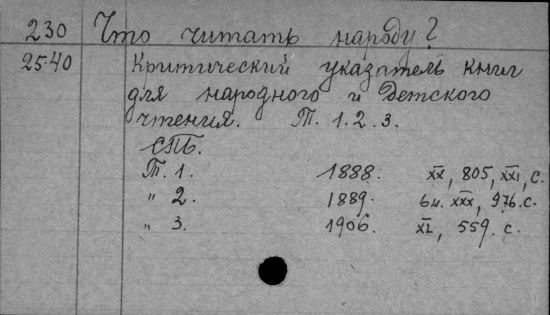 230 Что читать народу?
25.40 Критический указатель книг
для народного и детского
чтения. Т. 1. 2. 3.
СПБ.
Т. 1. 1888. XX, 805, XXI, с.
" 2. 1889. 6н. XXX, 976. с.
" 3. 1906. XI, 559. с.